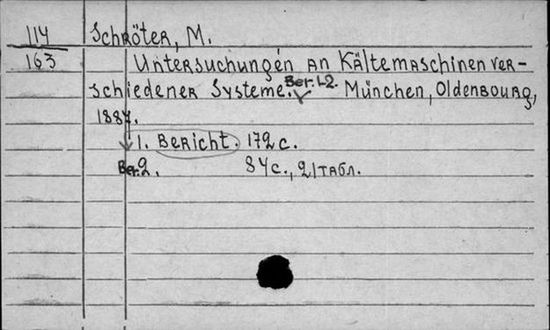 114 Schröter, M.
163 Untersuchungen an Kältemaschinen ver-
schiedener Systeme. Ber. 1-2. München, Oldenbourg,
1887.
1. Bericht. 172 c.
Ber. 2. 84 c., 21 табл.